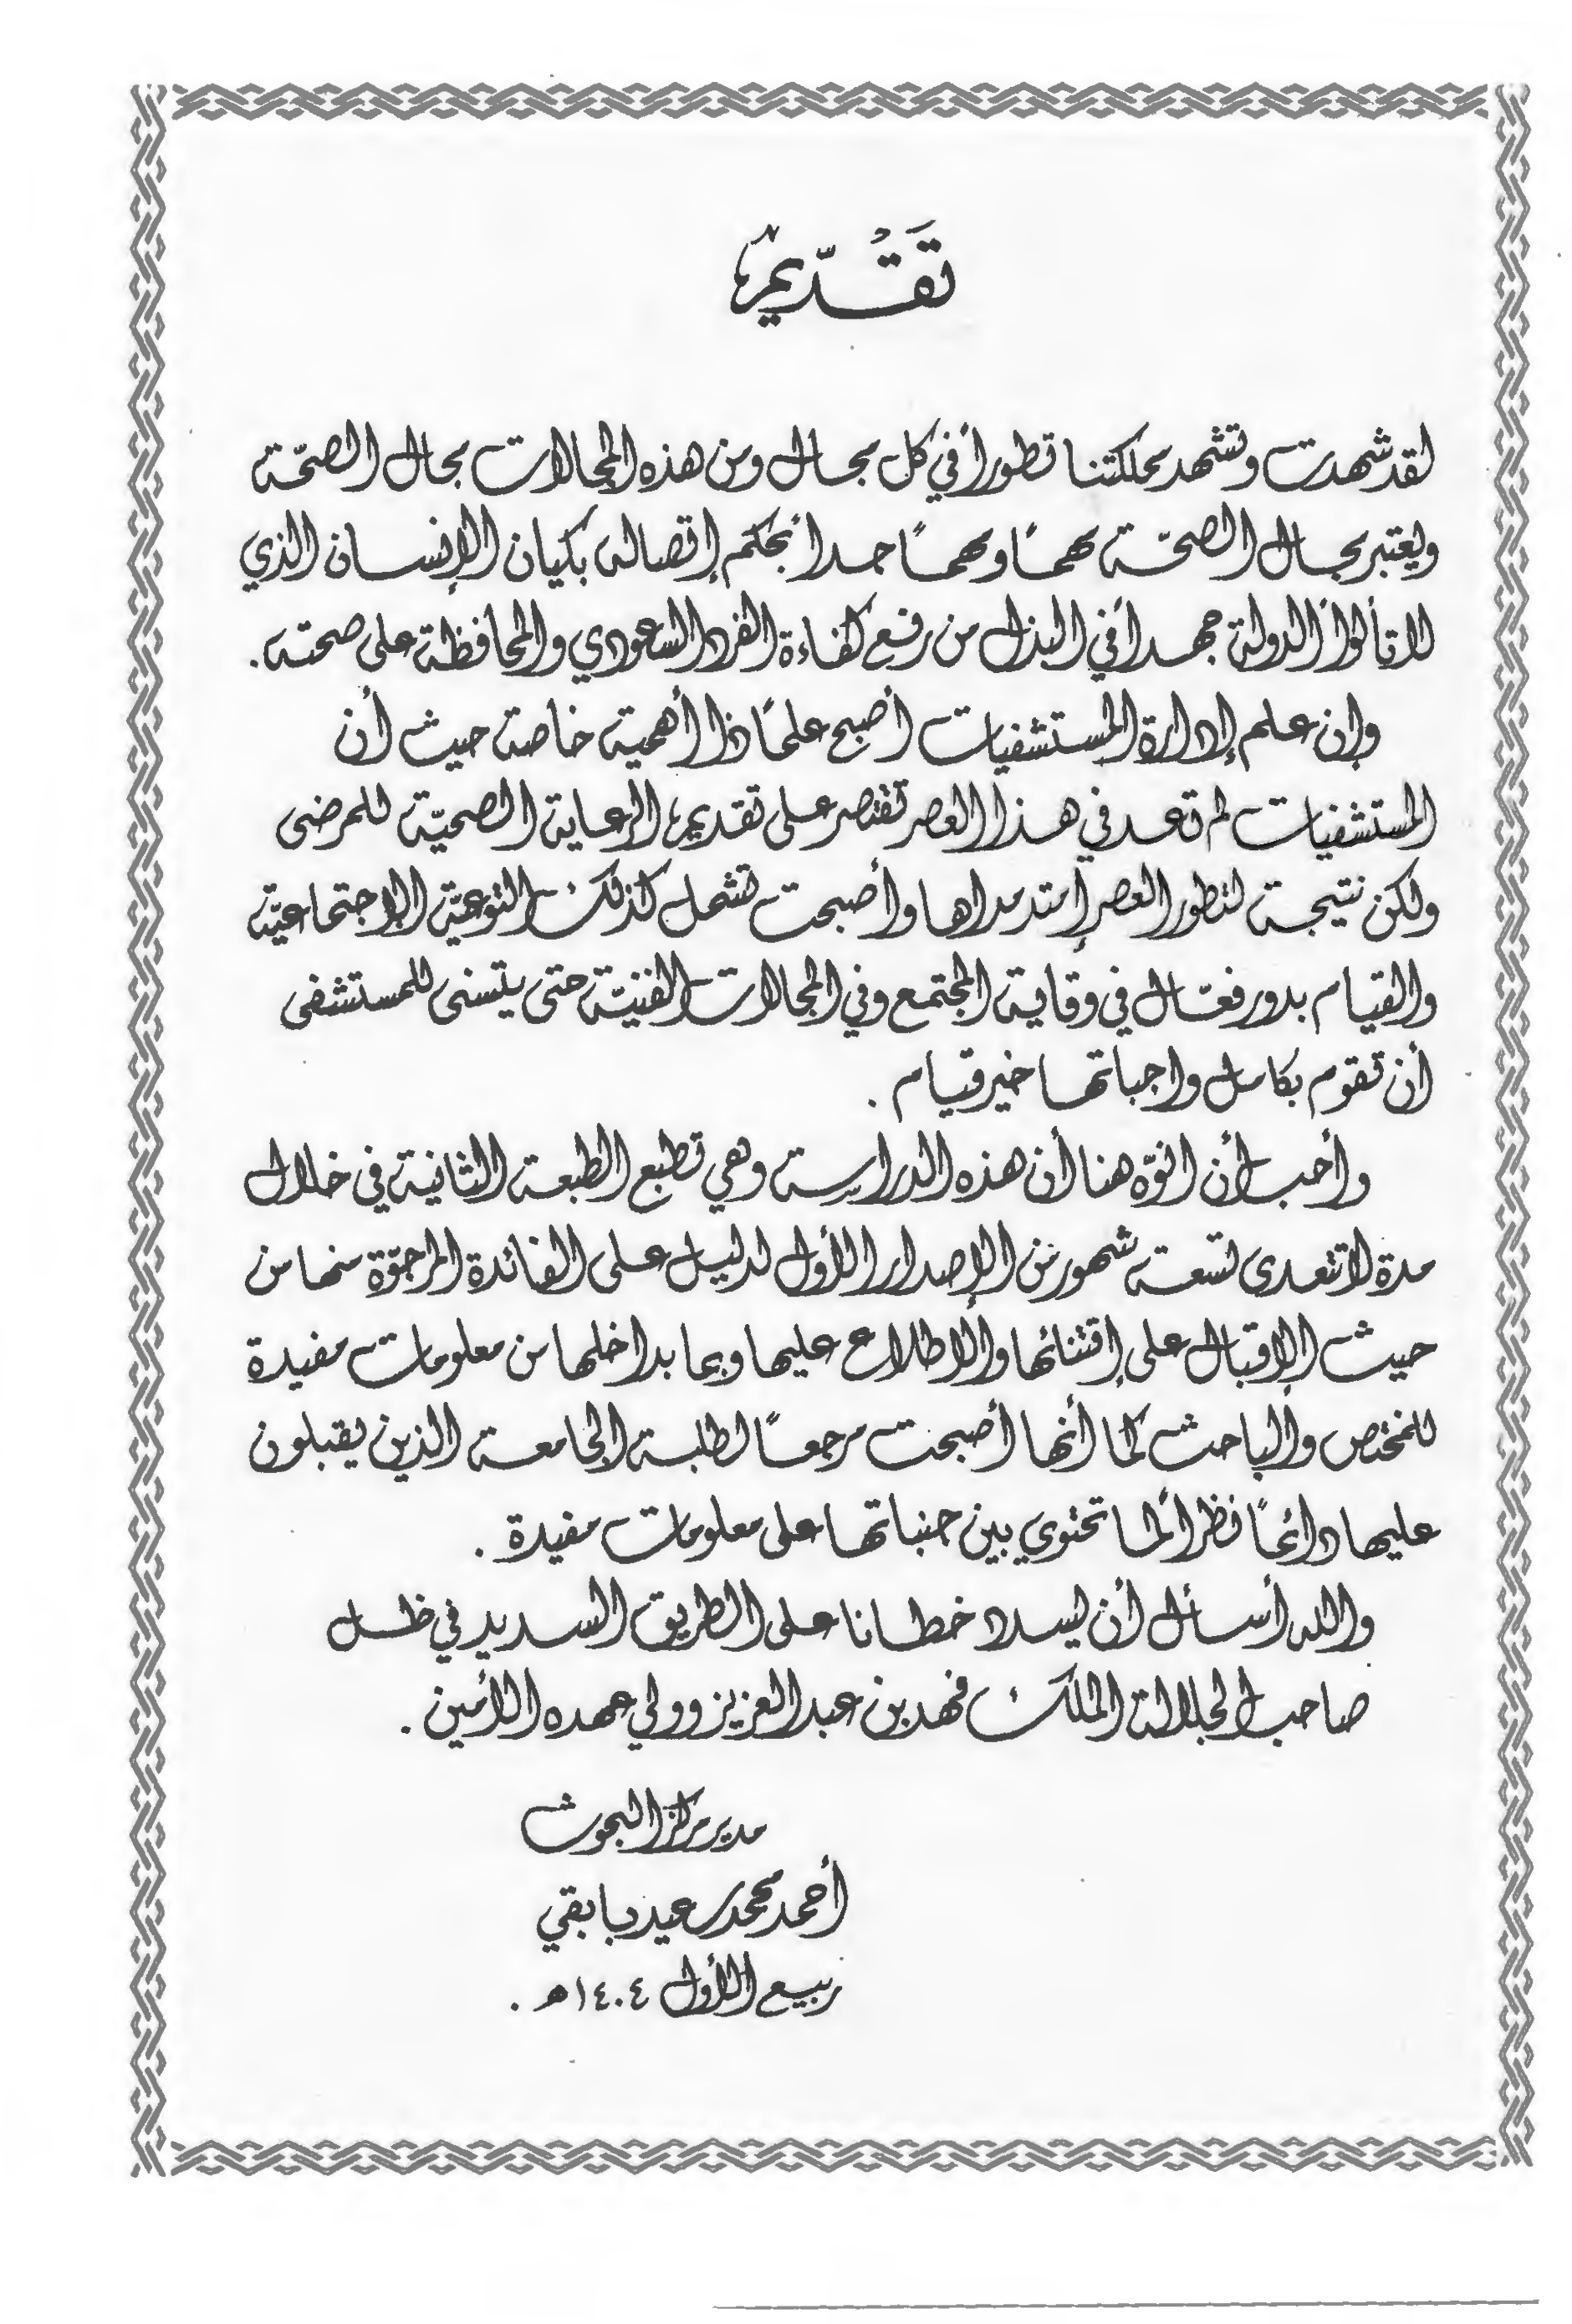 تَقْـدّيمٌ
لقد شهدت وتشهد مملكتنا تطوراً في كل مجال ومن هذه المجالات مجال الصحّة
ويعتبر مجال الصحّة مهمًا ومهمًا جداً بحكم إتصاله بكيان الإنسان الذي
لا تألوا الدولة جهداً في البذل من رفع كفاءة الفرد السعودي والمحافظة على صحته .
وإن علم إدارة المستشفيات أصبح علمًا ذا أهمية خاصة حيث أن
المستشفيات لم تعد في هذا العصر تقتصر على تقديم الرعاية الصحيّة للمرضى
ولكن نتيجة لتطور العصر إمتد مداها وأصبحت تشمل كذلك التوعيّة الإجتماعيّة
والقيام بدور فعّال في وقاية المجتمع وفي المجالات الفنيّة حتى يتسنى للمستشفى
أن تقوم بكامل واجباتها خير قيام .
وأحب أن انوّه هنا أن هذه الدراسة وهي تطبع الطبعة الثانية في خلال
مدة لا تتعدى تسعة شهور من الإصدار الأول لدليل على الفائدة المرجوّة منها من
حيث الإقبال على إقتنائها والإطلاع عليها وبما بداخلها من معلومات مفيدة
للمختص والباحث كما أنها أصبحت مرجعًا لطلبة الجامعة الذين يقبلون
عليها دائمًا نظراً لما تحتوي بين جنباتها على معلومات مفيدة .
والله أسأل أن يسدد خطانا على الطريق السديد في ظل
صاحب الجلالة الملك فهد بن عبد العزيز وولي عهده الأمين .
مدير مركز البحوث
أحمد محمد سعيد بابقي
ربيع الأول ١٤٠٤هـ .